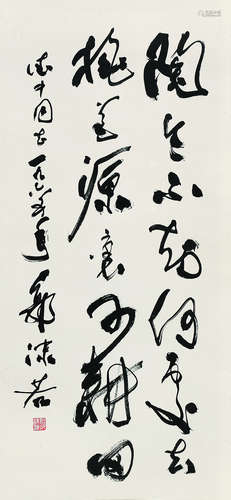 陶令不知何處去
桃花源裏可耕田
同志 一九六 年 郭沫若